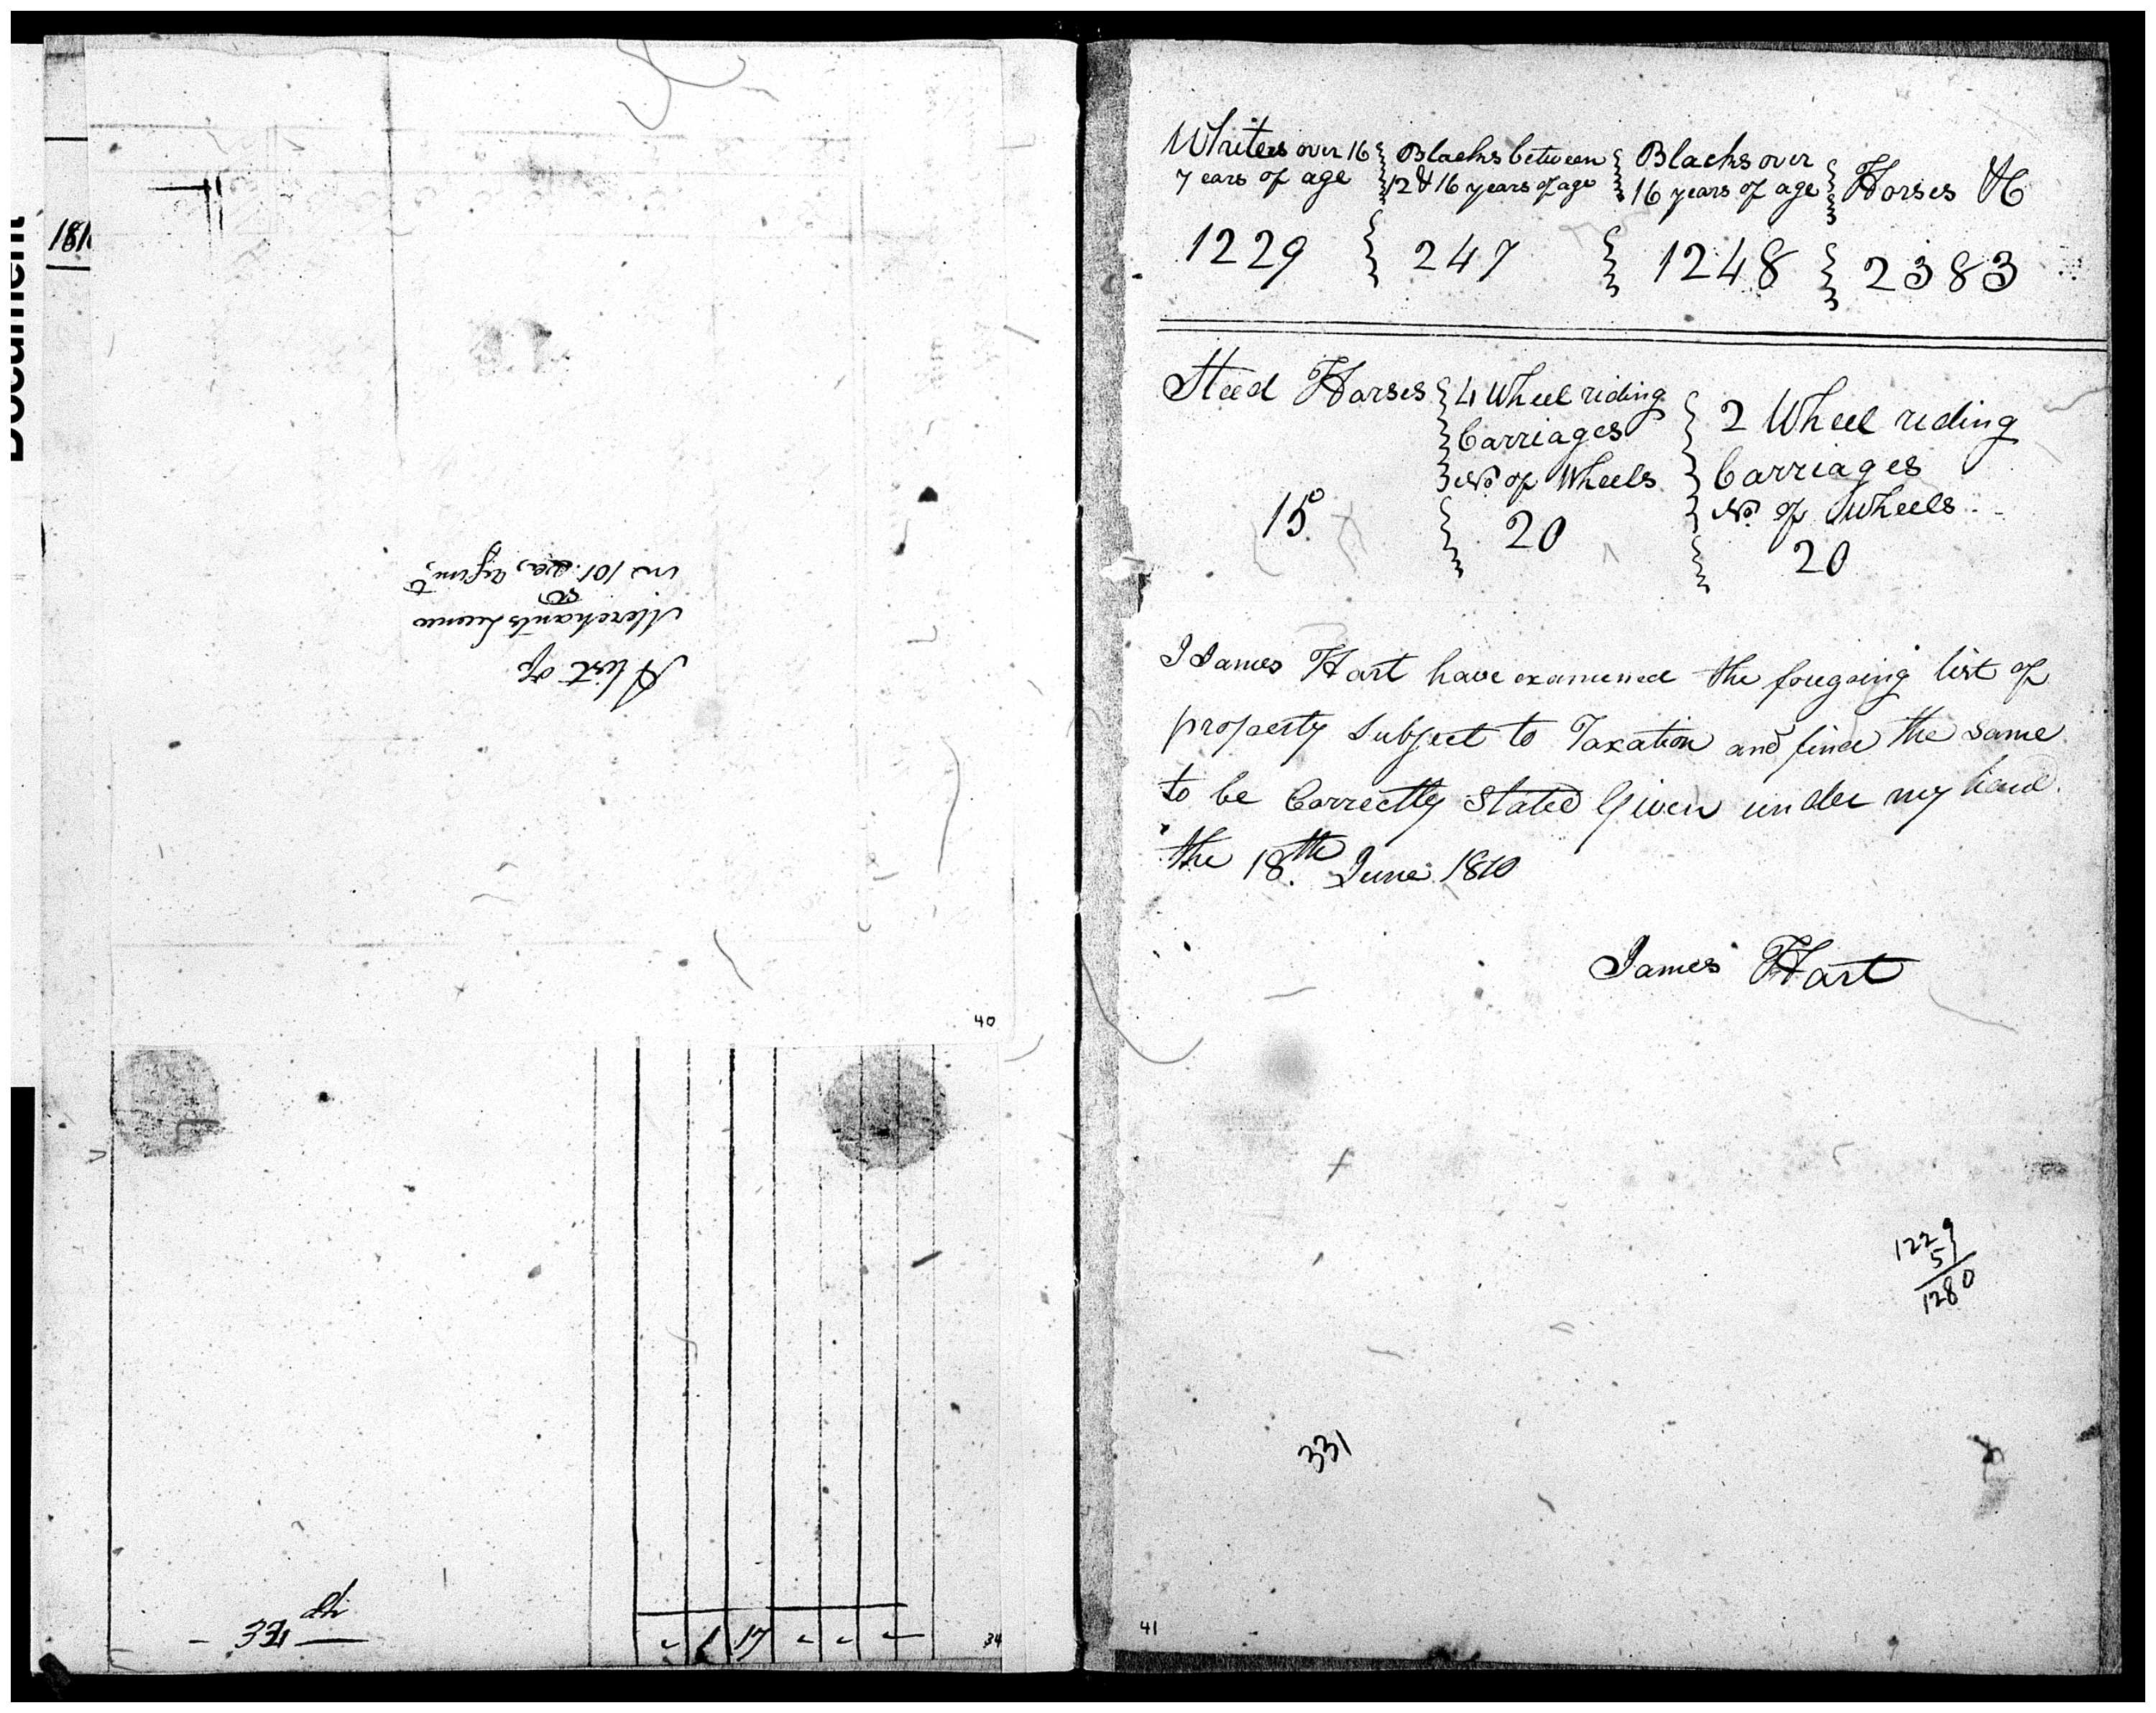 Document
181
A list of
Merchants License
in 101.
40
dh
331
1 17
34
Whites over 16 Blacks between Blacks over
years of age 12 & 16 years of age 16 years of age Horses &C
1229 247 1248 2383
Steed Horses 4 Wheel riding 2 Wheel riding
Carriages Carriages
No of Wheels No. of Wheels
15 20 20
I James Hart have examined the foregoing list of
property Subject to Taxation and find the same
to be Correctly Stated Given under my hand
the 18th June 1810
James Hart
1229
51
1280
331
41